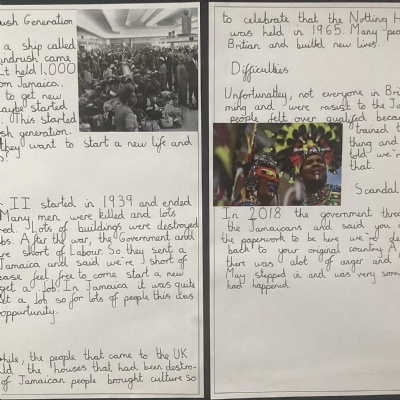 ush Generation
a ship called
indrush came
t held 1,000
om Jamaica.
to get new
aybe started
. This started
sh generation.
they want to start a new life and
?
II started in 1939 and ended
Many men were killed and lots
red. Lots of buildings were destroyed
bs. After the war, the Government and
re short of Labour. So they sent a
Jamaica and said we're short of
ease feel free to come start a new
get a job. In Jamaica it was quite
et a job so for lots of people this was
oppurtunity.
hile, the people that came to the UK
ld the houses that had been destro-
of Jamaican people brought culture so
to celebrate that the Notting H
was held in 1965. Many peo
Britian and build new lives.
Difficulties
Unfortunatley, not everyone in Bri
ming and were rasist to the Ja
people felt over qualified becau
trained t
thing and
told we're
that.
Scandal
In 2018 the government thre
the Jamaicans and said you
the paperwork to be here we're de
back to your original country. A
there was alot of anger and
May stepped in and was very som
had happened.